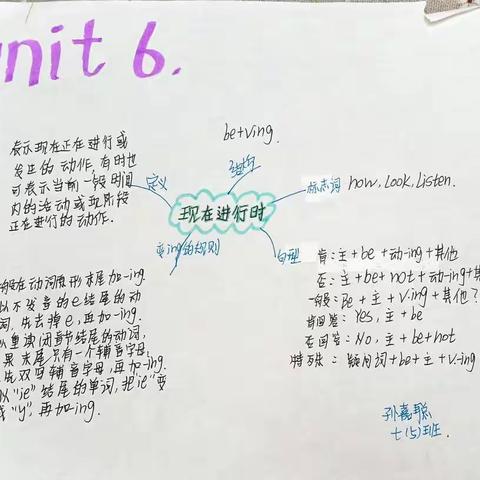 unit 6.
be+ving.
结构
表示现在正在进行或
发生的动作,有时也
可表示当前一段时间
内的活动或现阶段
正在进行的动作.
定义
现在进行时
标志词
now, Look, Listen.
变ing的规则
句型
肯:主+be+动-ing+其他
否:主+be+not+动-ing+其
一般:Be+主+v-ing+其他?
肯回答:Yes,主+be
否回答:No,主+be+not
特殊:疑问词+be+主+v-ing
般在动词原形末尾加-ing.
以不发音的e结尾的动
词,先去掉e,再加-ing.
重读闭音节结尾的动词,
果末尾只有一个辅音字母,
先双写辅音字母,再加-ing.
以"ie"结尾的单词,把"ie"变
"y",再加-ing.
孙嘉聪
七(5)班.